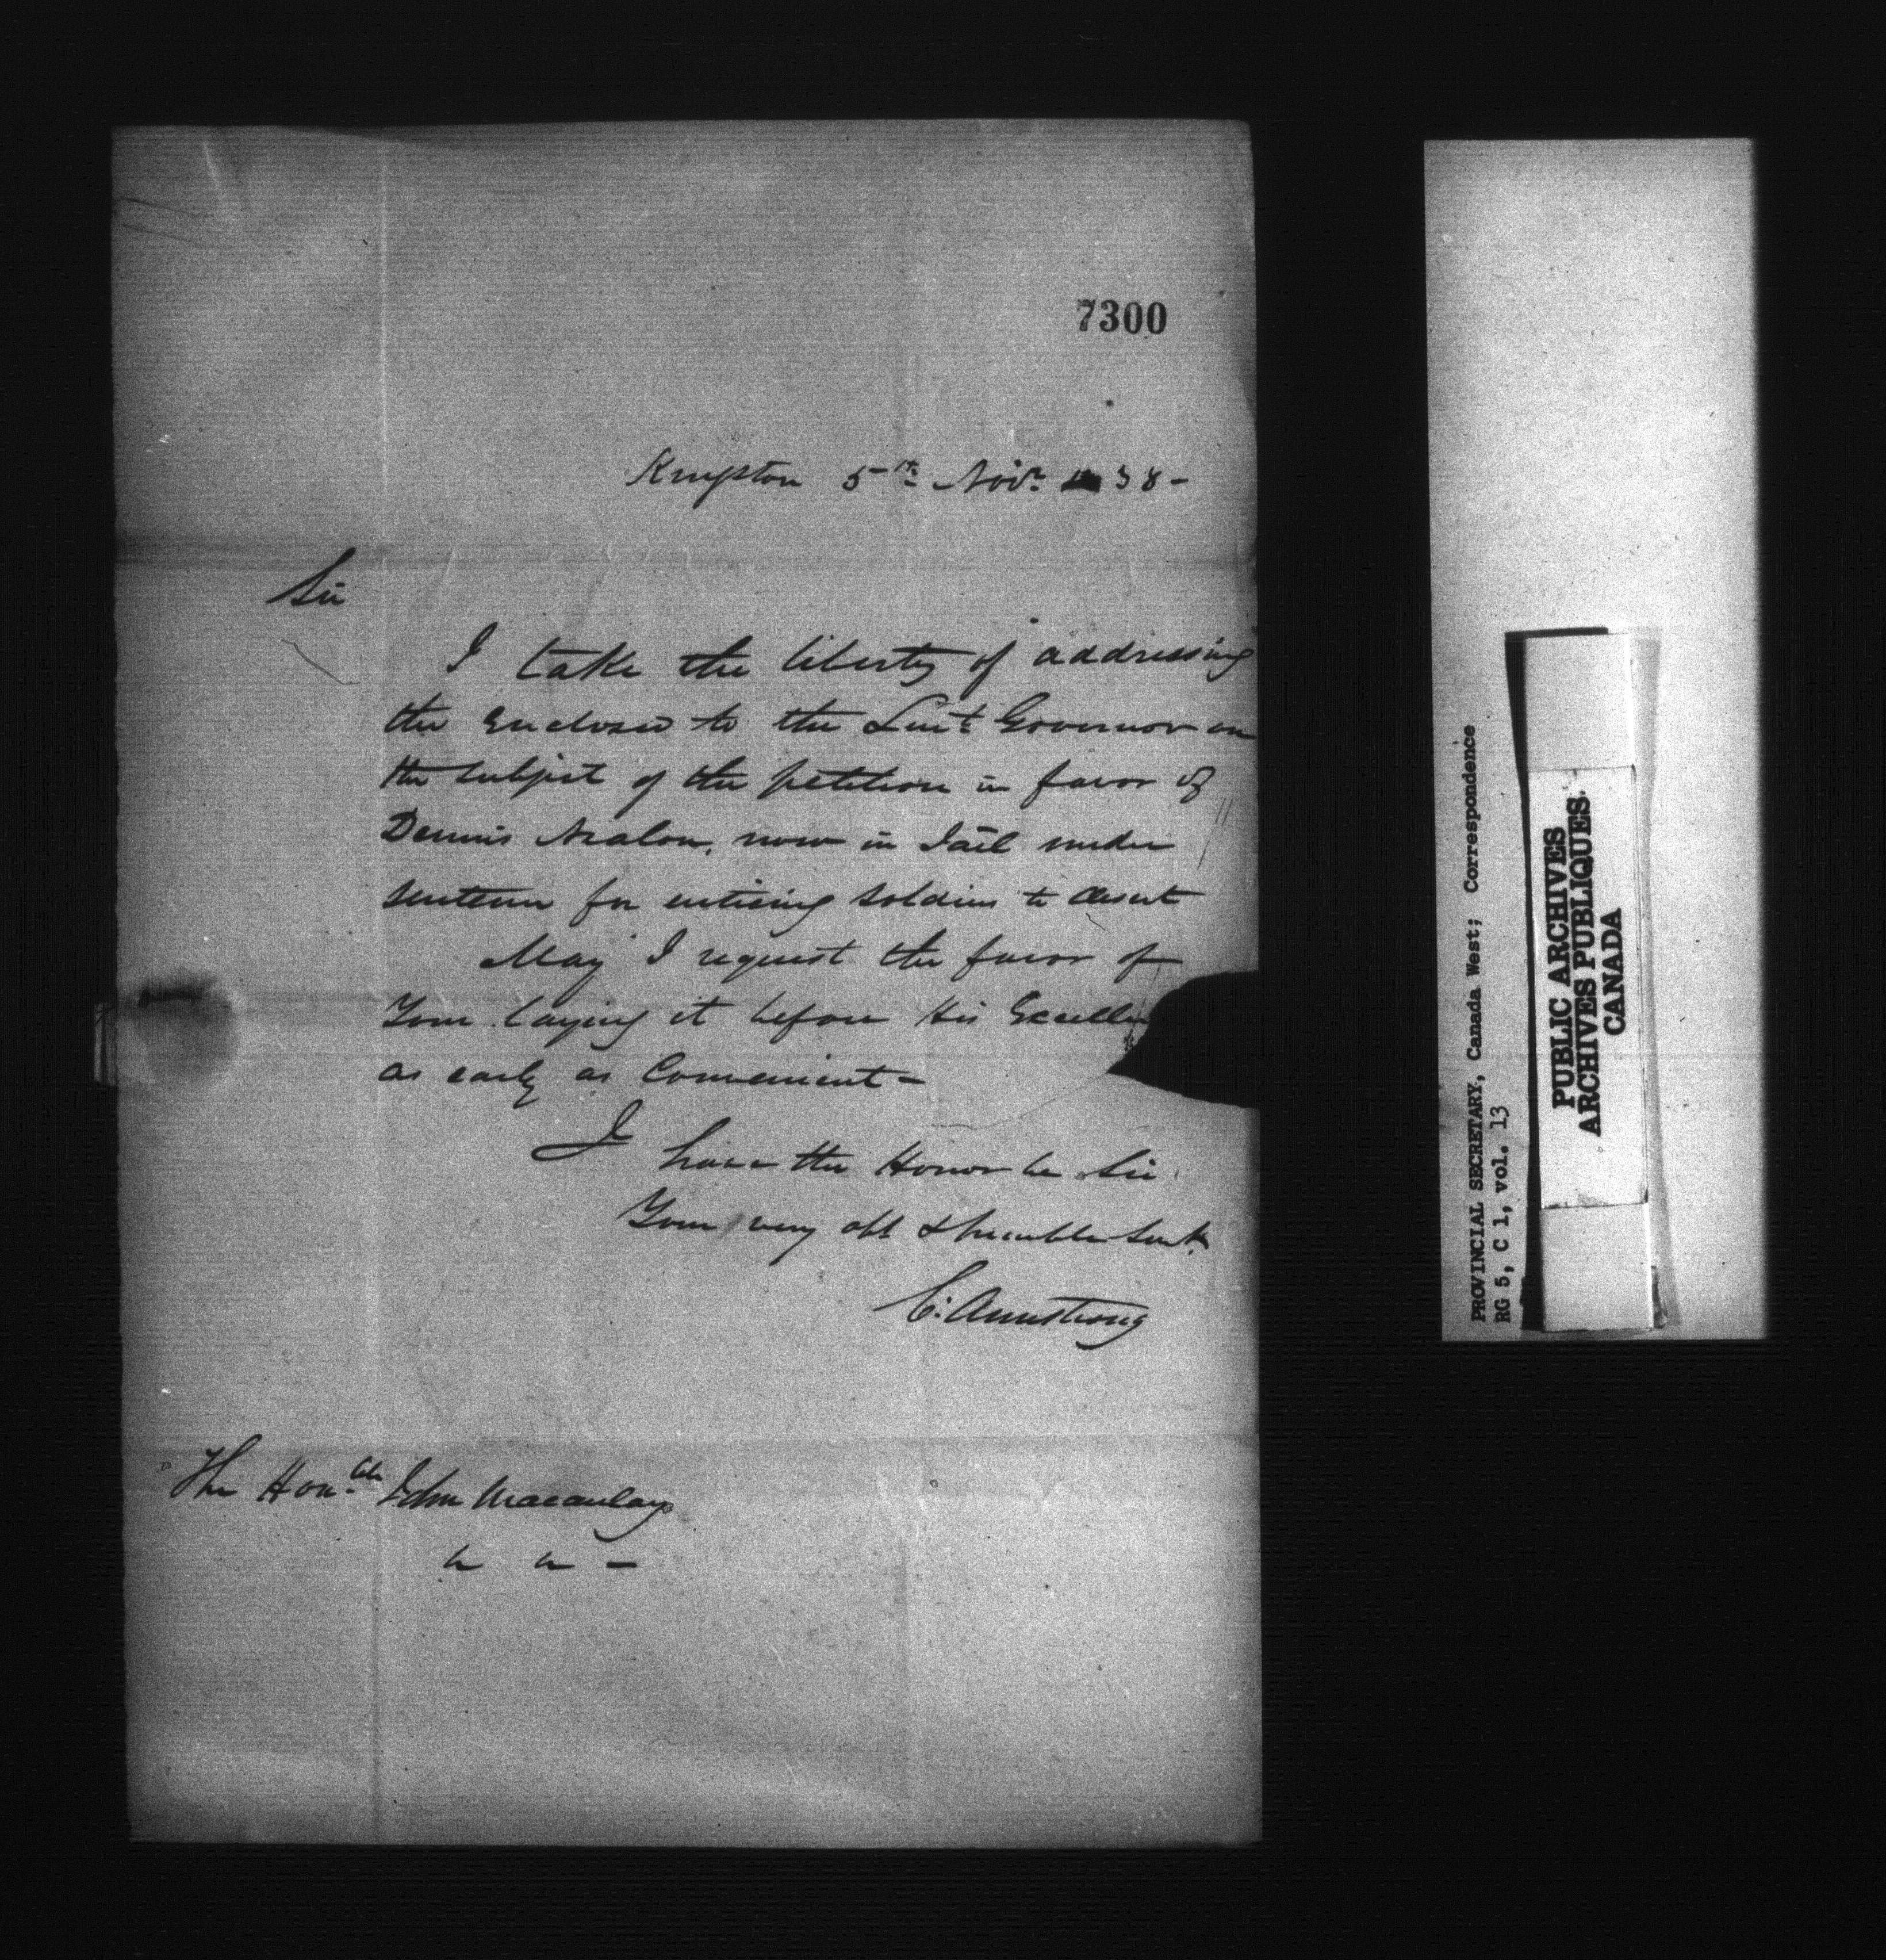 7300
Kingston 5th Novr 38-
Sir
I take the liberty of addressing
the Enclosed to the Lieut Governor on
the subject of the petition in favor of
Dennis now in Jail under
sentence for enticing soldiers to desert
May I request the favor of
Your laying it before His Excellen
as early as Convenient-
I have the Honor be Sir
Your very obt & humble Servt
C. Armstrong
The Honble John Macaulay
PROVINCIAL SECRETARY, Canada West; Correspondence
RG 5, C 1, vol. 13
PUBLIC ARCHIVES
ARCHIVES PUBLIQUES
CANADA